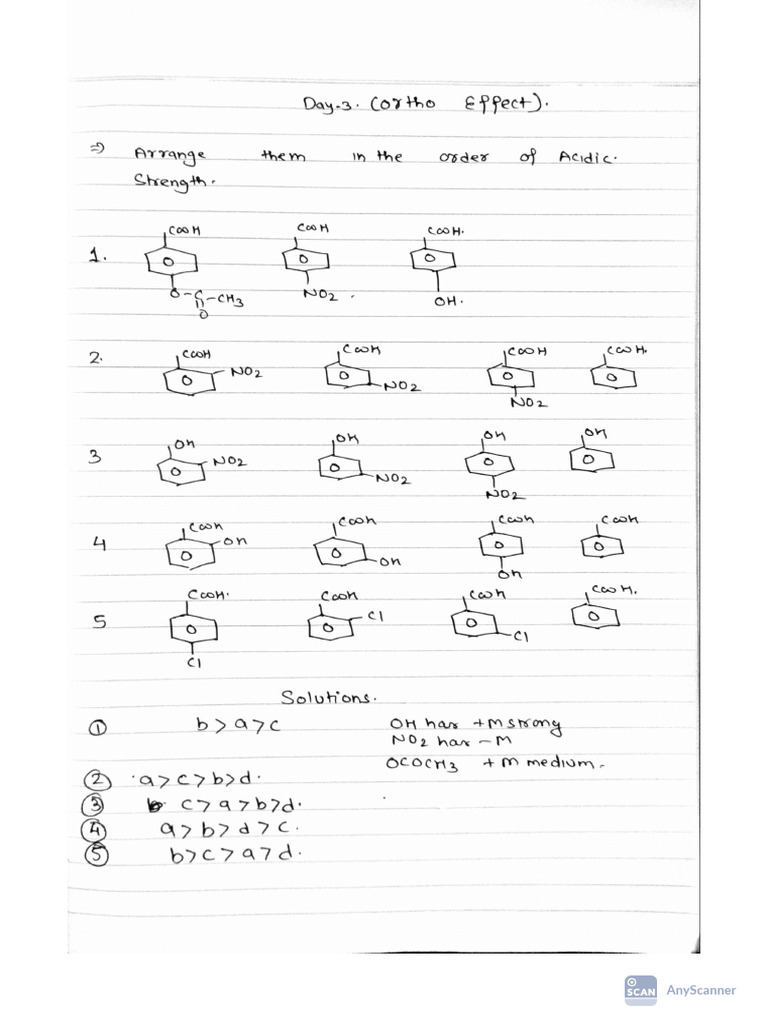 Day-3. (Ortho Effect).
⇒ Arrange them in the order of Acidic.
Strength.
1.
COOH COOH COOH.
O-C-CH3 NO2. OH.
O
2.
COOH COOH COOH COOH.
NO2 NO2 NO2
3
OH OH OH OH
NO2 NO2 NO2
4
COOH COOH COOH COOH
OH OH OH
5
COOH. COOH COOH COOH.
Cl Cl Cl
Solutions.
① b>a>c OH has +M strong
NO2 has -M
OCOCH3 +M medium.
② a>c>b>d.
③ c>a>b>d.
④ a>b>d>c.
⑤ b>c>a>d.
SCAN AnyScanner